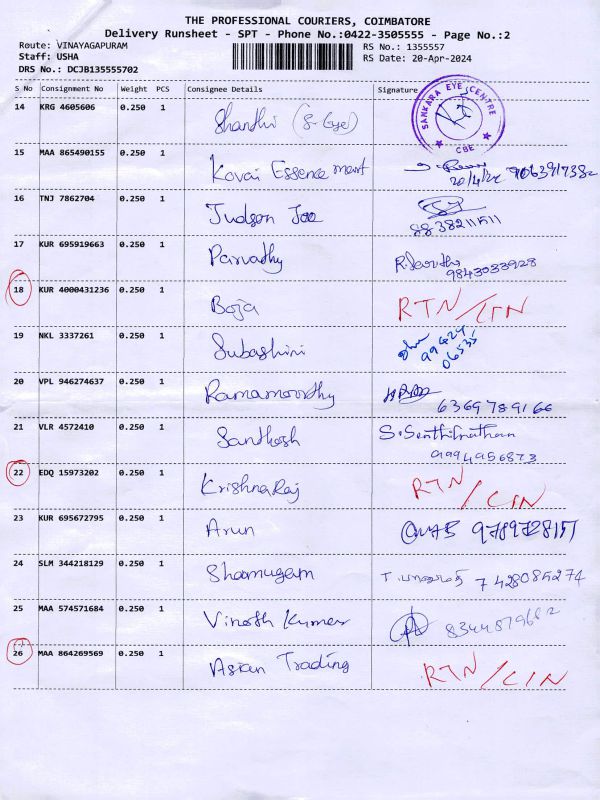 THE PROFESSIONAL COURIERS, COIMBATORE
Delivery Runsheet - SPT - Phone No.:0422-3505555 - Page No.:2
Route: VINAYAGAPURAM RS No.: 1355557
Staff: USHA RS Date: 20-Apr-2024
DRS No.: DCJB135555702
S No Consignment No Weight PCS Consignee Details Signature
14 KRG 4605606 0.250 1 Shanthi (S-Eye) SANKARA EYE CENTRE CBE
15 MAA 865490155 0.250 1 Kovai Essence mart 20/4/24 9063917382
16 TNJ 7862704 0.250 1 Judson Joe 8838211511
17 KUR 695919663 0.250 1 Parvathy 9843033928
18 KUR 4000431236 0.250 1 Boja RTN/CIN
19 NKL 3337261 0.250 1 Subashini 99424 06535
20 VPL 946274637 0.250 1 Ramamoorthy 6369789166
21 VLR 4572410 0.250 1 Santhosh S.Senthilnathan 9994956873
22 EDQ 15973202 0.250 1 KrishnaRaj RTN/CIN
23 KUR 695672795 0.250 1 Arun 9789728151
24 SLM 344218129 0.250 1 Shamugam 7428085274
25 MAA 574571684 0.250 1 Vinoth Kumar 8344879662
26 MAA 864269569 0.250 1 Asian Trading RTN/CIN